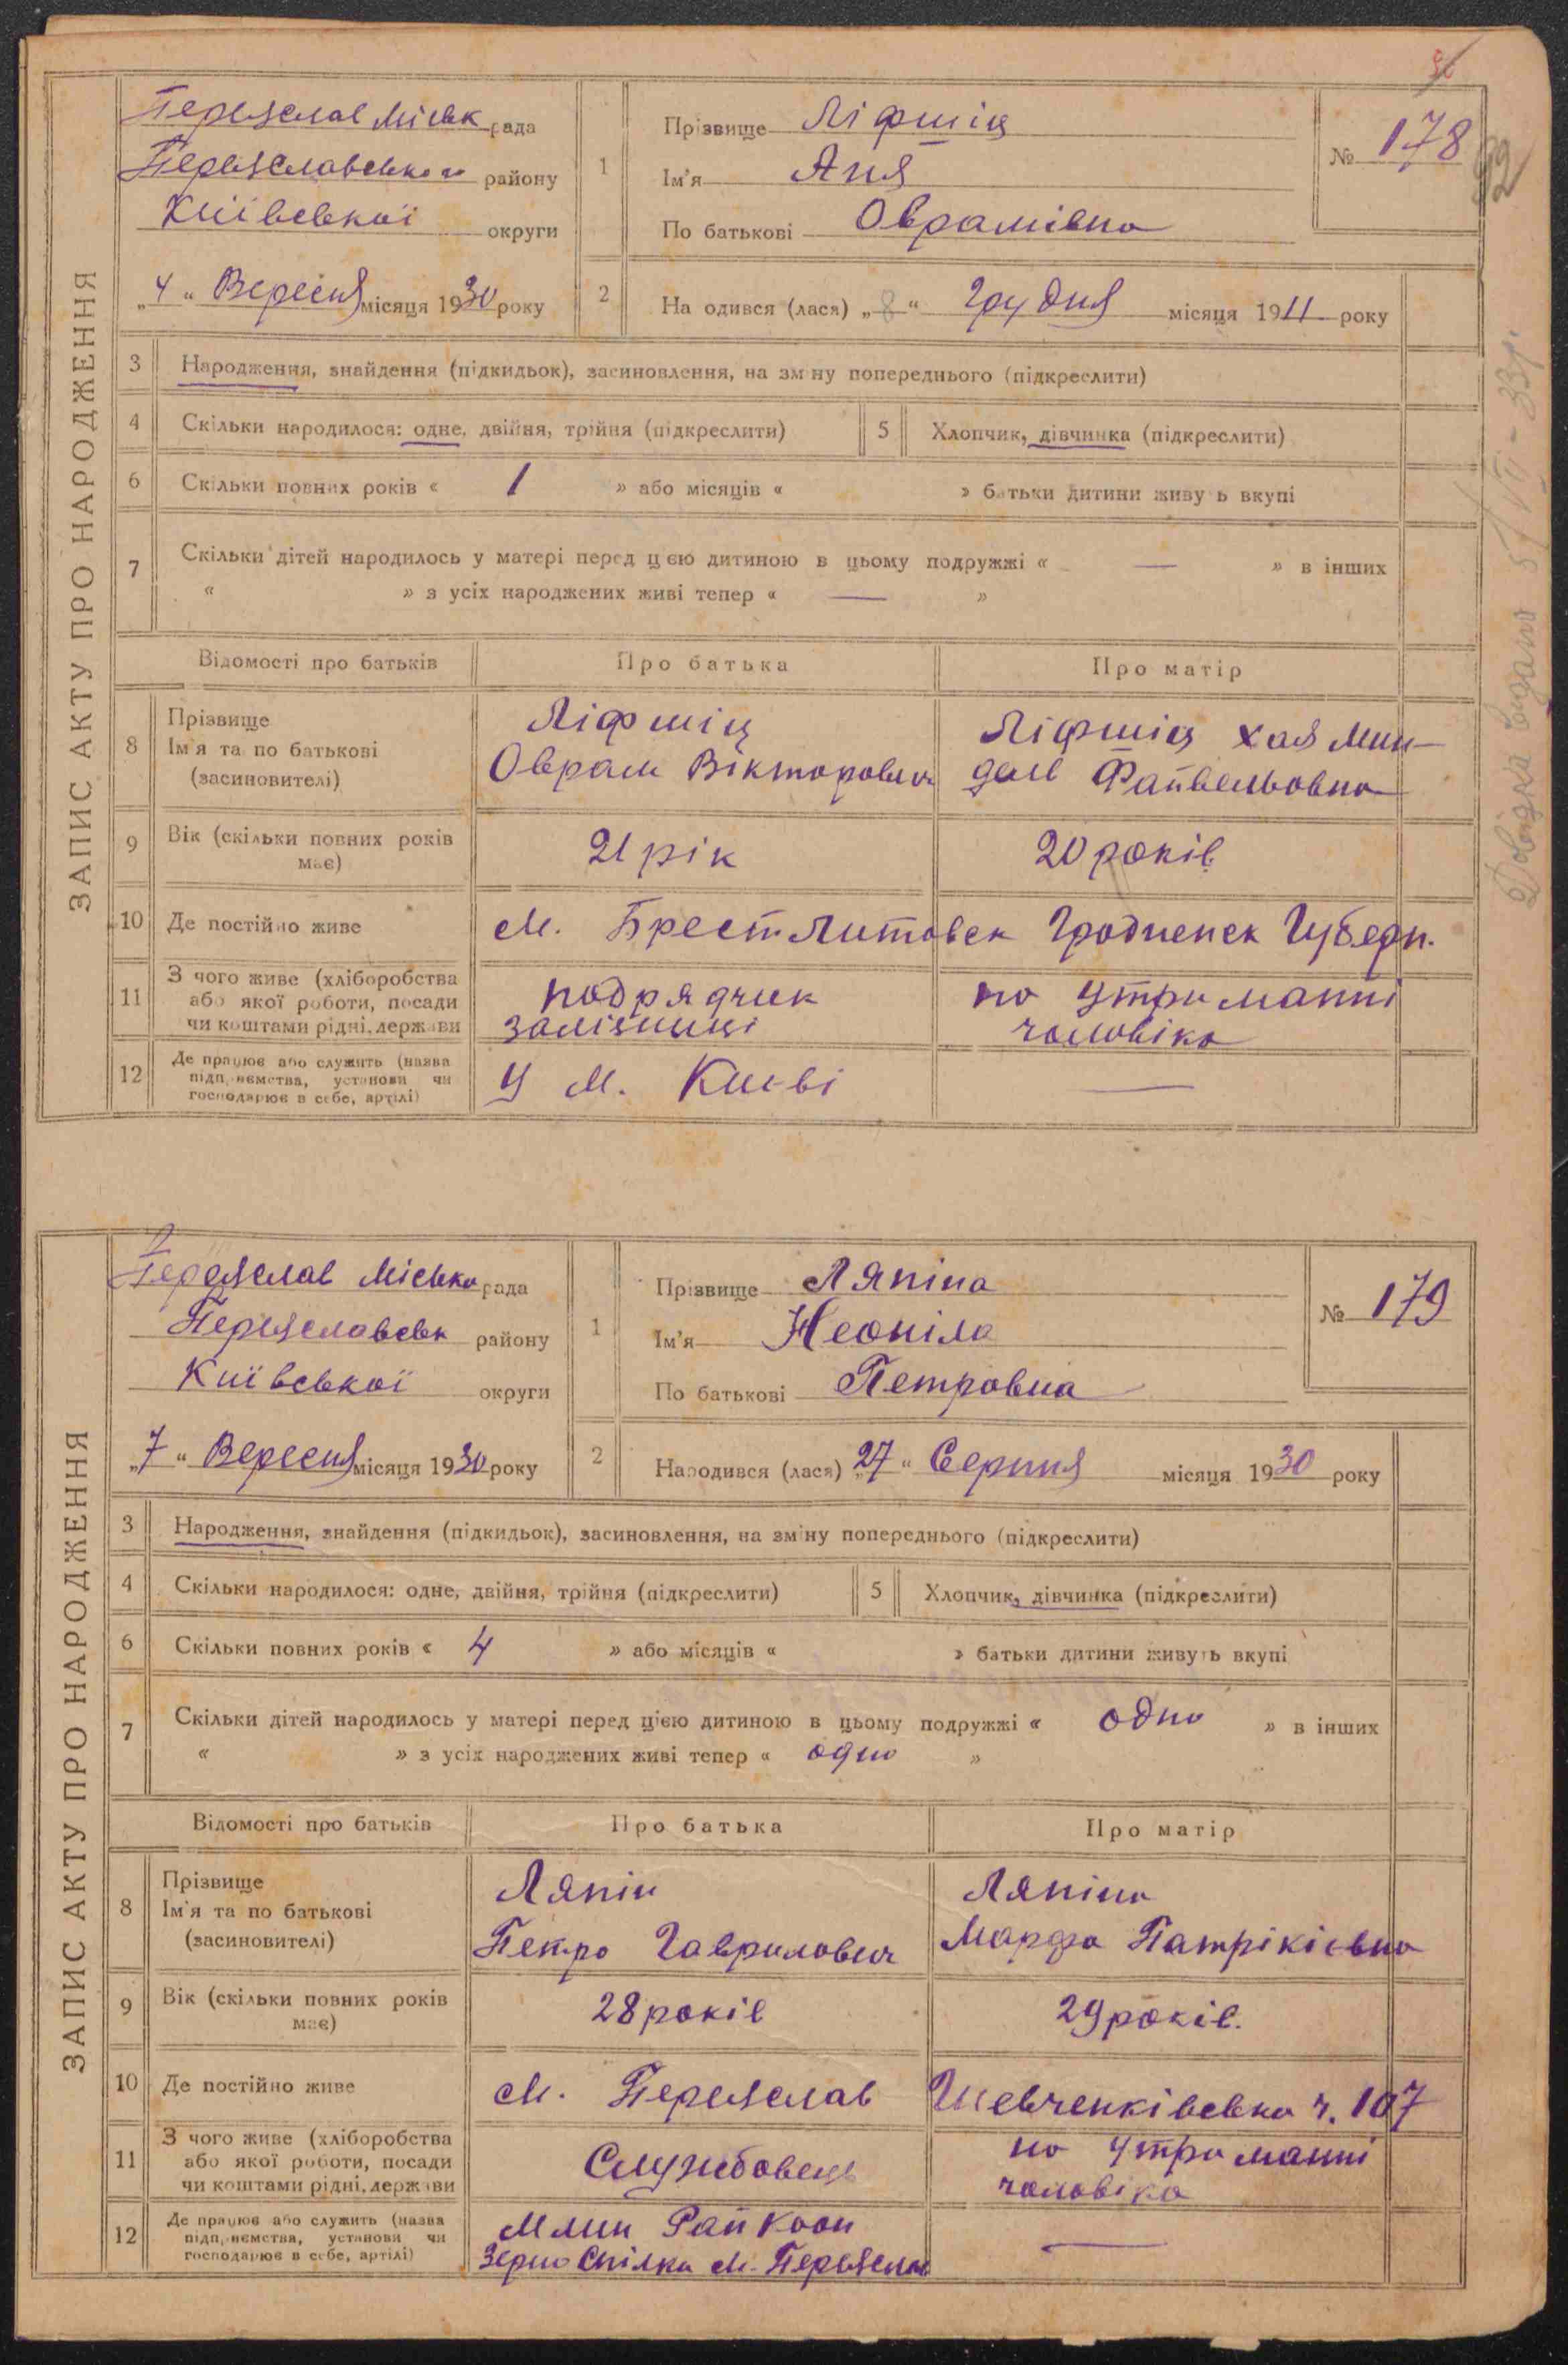 ЗАПИС АКТУ ПРО НАРОДЖЕННЯ
Переяслав Міськ рада
Переяславського району
Київської округи
„4“ Вересня місяця 1930 року
1 Прізвище Ліфшіц
Ім'я Аня
По батькові Оврамівна
№ 178
2 На одився (лася) „8“ Грудня місяця 1911 року
3 Народження, знайдення (підкидьок), засиновлення, на зміну попереднього (підкреслити)
4 Скільки народилося: одне, двійня, трійня (підкреслити) 5 Хлопчик, дівчинка (підкреслити)
6 Скільки повних років « 1 » або місяців « » батьки дитини живуть вкупі
7 Скільки дітей народилось у матері перед цією дитиною в цьому подружжі « — » в інших
« » з усіх народжених живі тепер « — »
Відомості про батьків Про батька Про матір
8 Прізвище Ім'я та по батькові (засиновителі)
Ліфшіц
Оврам Вікторович
Ліфшіц Хая Мин-
дель Файвельовна
9 Вік (скільки повних років має) 21 рік 20 років
10 Де постійно живе м. Брест Литовск Гродненск Губерн.
11 З чого живе (хліборобства або якої роботи, посади чи коштами рідні, держави
подрядчик
залізниці
на утриманні
чоловіка
12 Де працює або служить (назва підприємства, установи чи господарює в себе, артілі) У м. Києві —
Довідка видано 5/VII-33р.
ЗАПИС АКТУ ПРО НАРОДЖЕННЯ
Переяслав Міська рада
Переяславськ району
Київської округи
„7“ Вересня місяця 1930 року
1 Прізвище Ляпіна
Ім'я Неоніла
По батькові Петровна
№ 179
2 Народився (лася) „27“ Серпня місяця 1930 року
3 Народження, знайдення (підкидьок), засиновлення, на зміну попереднього (підкреслити)
4 Скільки народилося: одне, двійня, трійня (підкреслити) 5 Хлопчик, дівчинка (підкреслити)
6 Скільки повних років « 4 » або місяців « » батьки дитини живуть вкупі
7 Скільки дітей народилось у матері перед цією дитиною в цьому подружжі « одно » в інших
« » з усіх народжених живі тепер « одно »
Відомості про батьків Про батька Про матір
8 Прізвище Ім'я та по батькові (засиновителі)
Ляпін
Петро Гаврилович
Ляпіна
Марфа Патрікієвна
9 Вік (скільки повних років має) 28 років 29 років.
10 Де постійно живе м. Переяслав Шевченківська ч. 107
11 З чого живе (хліборобства або якої роботи, посади чи коштами рідні, держави
Службовець
на утриманні
чоловіка
12 Де працює або служить (назва підприємства, установи чи господарює в себе, артілі)
Млин Рай Кооп
Зерно Спілка м. Переяслав
—